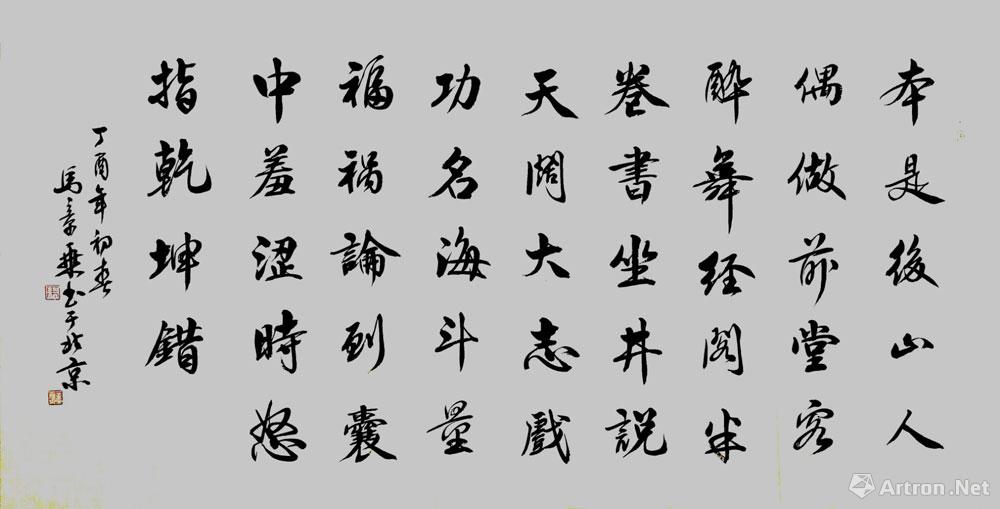 本是後山人
偶做前堂客
醉舞經閣半
卷書坐井說
天闊大志戲
功名海斗量
福禍論到囊
中羞澀時怒
指乾坤錯
丁酉年初春
馬书于北京
Artron.Net